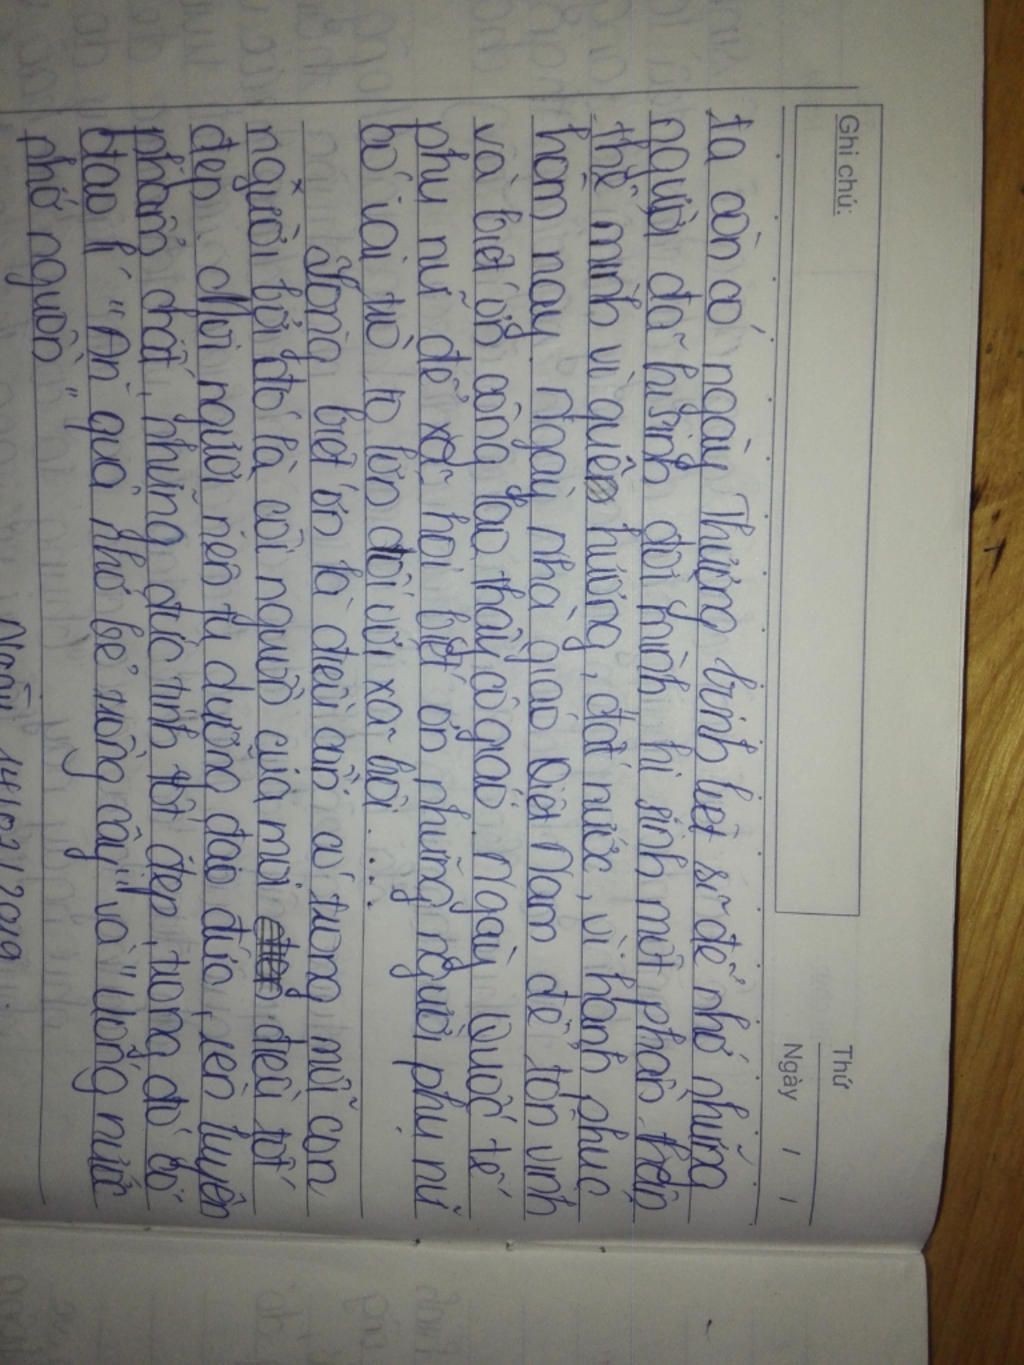 Ghi chú:
Thứ
Ngày / /
ta còn có ngày Thương binh liệt sĩ để nhớ những
người đã hi sinh đời mình hi sinh một phần thân
thể mình vì quê hương, đất nước, vì hạnh phúc
hôm nay. Ngày nhà giáo Việt Nam để tôn vinh
và biết ơn công lao thầy cô giáo. Ngày Quốc tế
phụ nữ để xã hội biết ơn những người phụ nữ
có vai trò to lớn đối với xã hội....
Lòng biết ơn là điều cần có trong mỗi con
người bởi đó là cội nguồn của mọi điều tốt
đẹp. Mỗi người nên tu dưỡng đạo đức, rèn luyện
phẩm chất, những đức tính tốt đẹp, trong đó có
đạo lí "Ăn quả nhớ kẻ trồng cây" và "Uống nước
nhớ nguồn"
Ngày 14/02/2019.